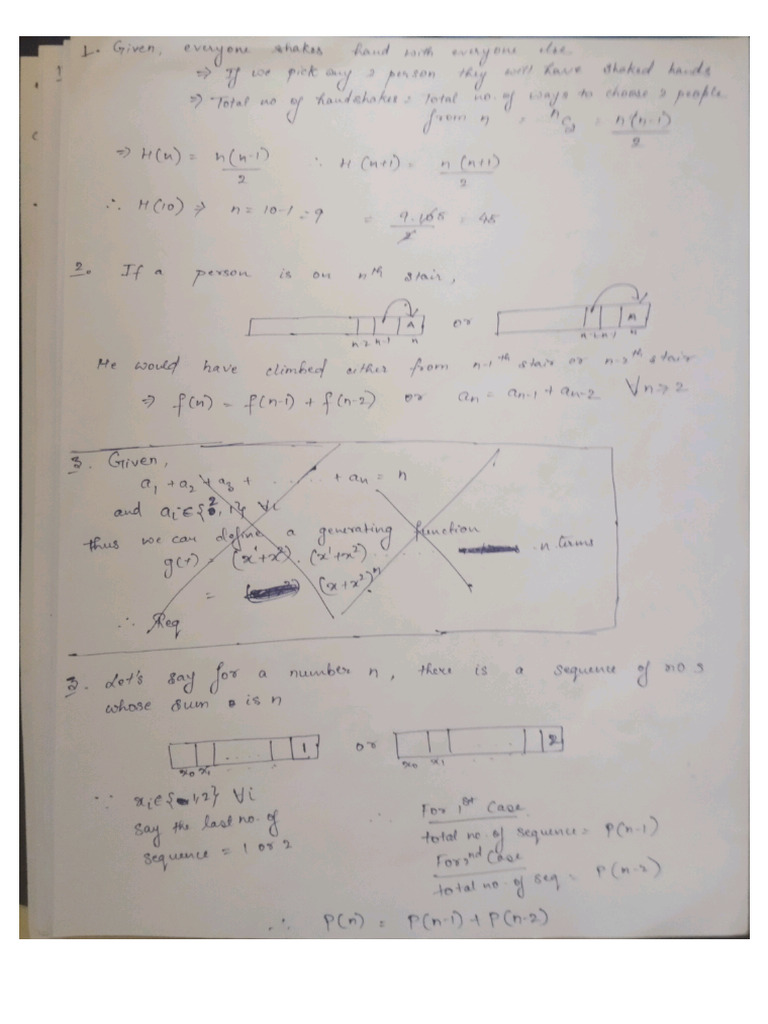 1. Given, everyone shakes hand with everyone else
⇒ If we pick any 2 person they will have shaked hands
⇒ Total no of handshakes = Total no. of ways to choose 2 people
from n = ⁿC₂ = n(n-1)/2
⇒ H(n) = n(n-1)/2 ∴ H(n+1) = n(n+1)/2
∴ H(10) ⇒ n = 10-1 = 9 = 9.10 5/2 = 45
2. If a person is on nth stair,
A or A
n-2 n-1 n n-2 n-1 n
He would have climbed either from n-1th stair or n-2th stair
⇒ f(n) = f(n-1) + f(n-2) or an = an-1 + an-2 ∀n>2
3. Given,
a₁ + a₂ + a₃ + ...... + an = n
and ai ∈ {2, 1} ∀i
thus we can define a generating function
g(x) = (x¹+x²) . (x¹+x²) ...... n terms
= (x+x²)ⁿ
∴ Req
3. Let's say for a number n, there is a sequence of no s
whose sum is n
1 or 2
x₀ x₁ x₀ x₁
∵ xi ∈ {1,2} ∀i ∴ For 1st Case
say the last no. of total no. of sequence = P(n-1)
sequence = 1 or 2 For 2nd Case
total no. of seq = P(n-2)
∴ P(n) = P(n-1) + P(n-2)